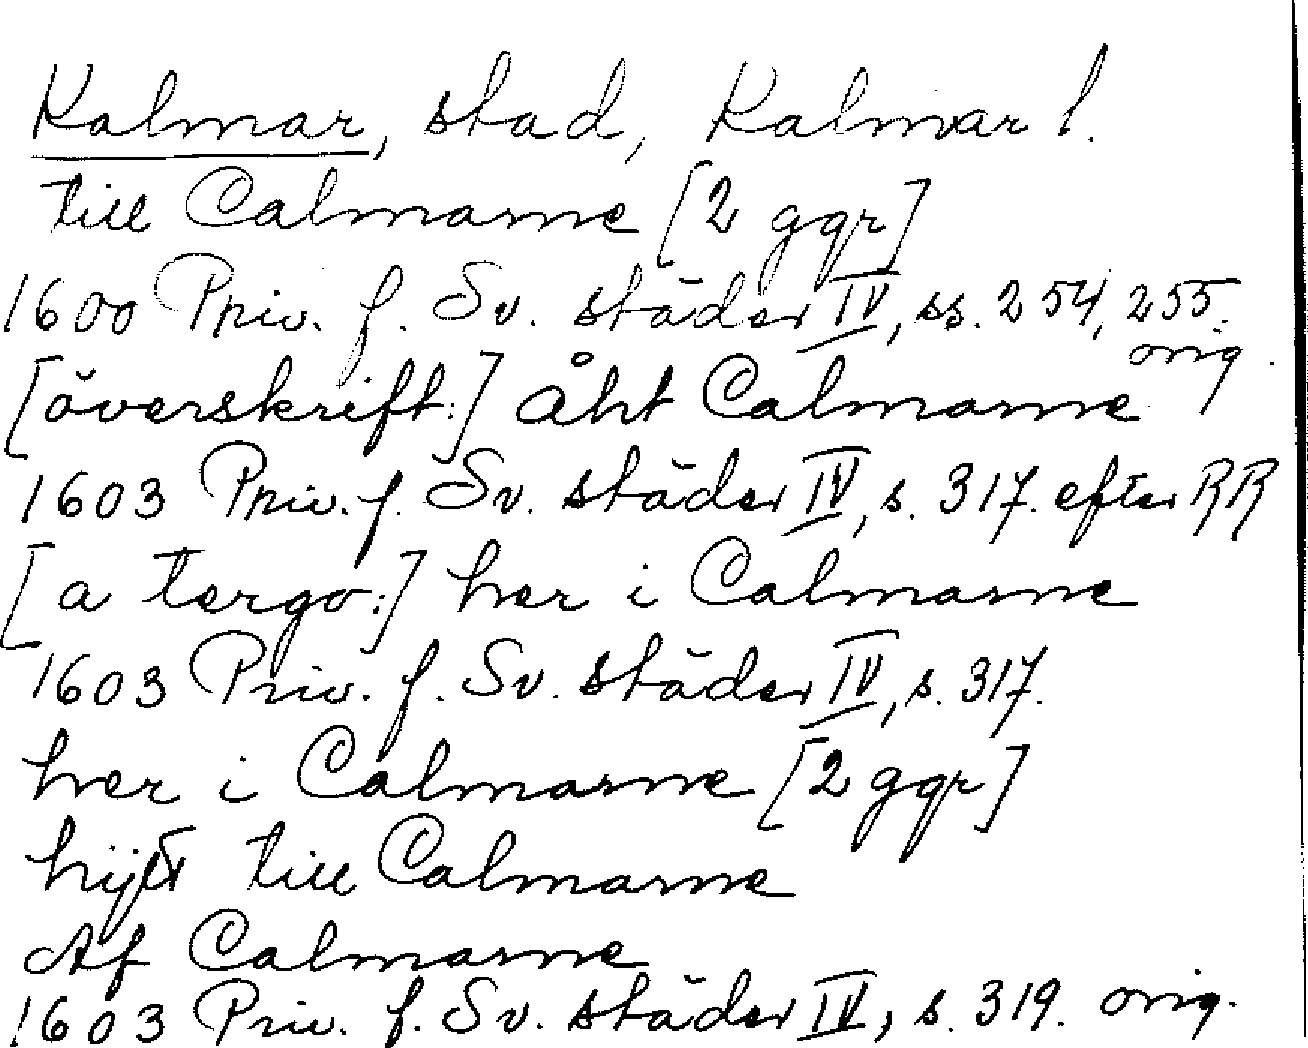 Kalmar, stad, Kalmar l.
till Calmarne [2 ggr]
1600 Priv. f. Sv. städer IV, ss. 254, 255. orig.
[överskrift:] Åht Calmarne
1603 Priv. f. Sv. städer IV, s. 317. efter RR
[a tergo:] her i Calmarne
1603 Priv. f. Sv. städer IV, s. 317.
her i Calmarne [2 ggr]
till Calmarne
Af Calmarne
1603 Priv. f. Sv. städer IV, s. 319. orig.